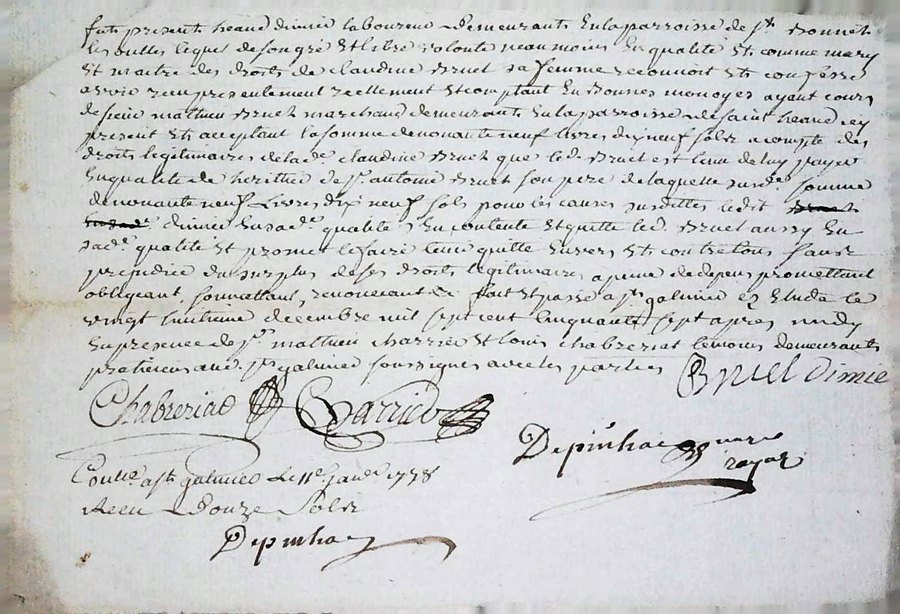 fut present heand dimier laboureur demeurants En la parroisse de st Bonnet
les oulles lequel de son gré Et libre volonté neanmoins En qualité Et comme mary
Et maitre des droits de claudine Bruel sa femme reconnoit Et confesse
avoir reçu presentement reellement Et comptant En Bonnes monoyes ayant cours
de sieur mathieu Bruel marchand demeurants En la parroisse de saint heand icy
present Et acceptant la somme de nonante neuf livres dix neuf sols a compte des
droits legitimaires de la de claudine Bruel que led. Bruel est tenu de luy payer
En qualité de heritier de sr antoine Bruel son pere de laquelle susde somme
de nonante neuf Livres dix neuf sols pour les causes susdittes ledit
dimier En sade qualité s'En contente Et quitte led. Bruel aussy En
sade qualité Et promet le faire tenir quitte Envers Et contre tous sans
prejudice du surplus de ses droits legitimaires a peine de depens promettant
obligeant, soumettant, renonceant &c fait Et passé a st galmier Ez Etude le
vingt huitieme decembre mil sept cent cinquante sept après midy
En presence de sr mathieu charrier Et louis chabreriat temoins demeurants
praticiens aud. st galmier soussignes avec les parties Bruel dimie
Chabreriat Carrier
Depinhac notaire
royal
Contlé a st galmier Le 11e janer 1758
Reçu Douze Sols
Depinhac